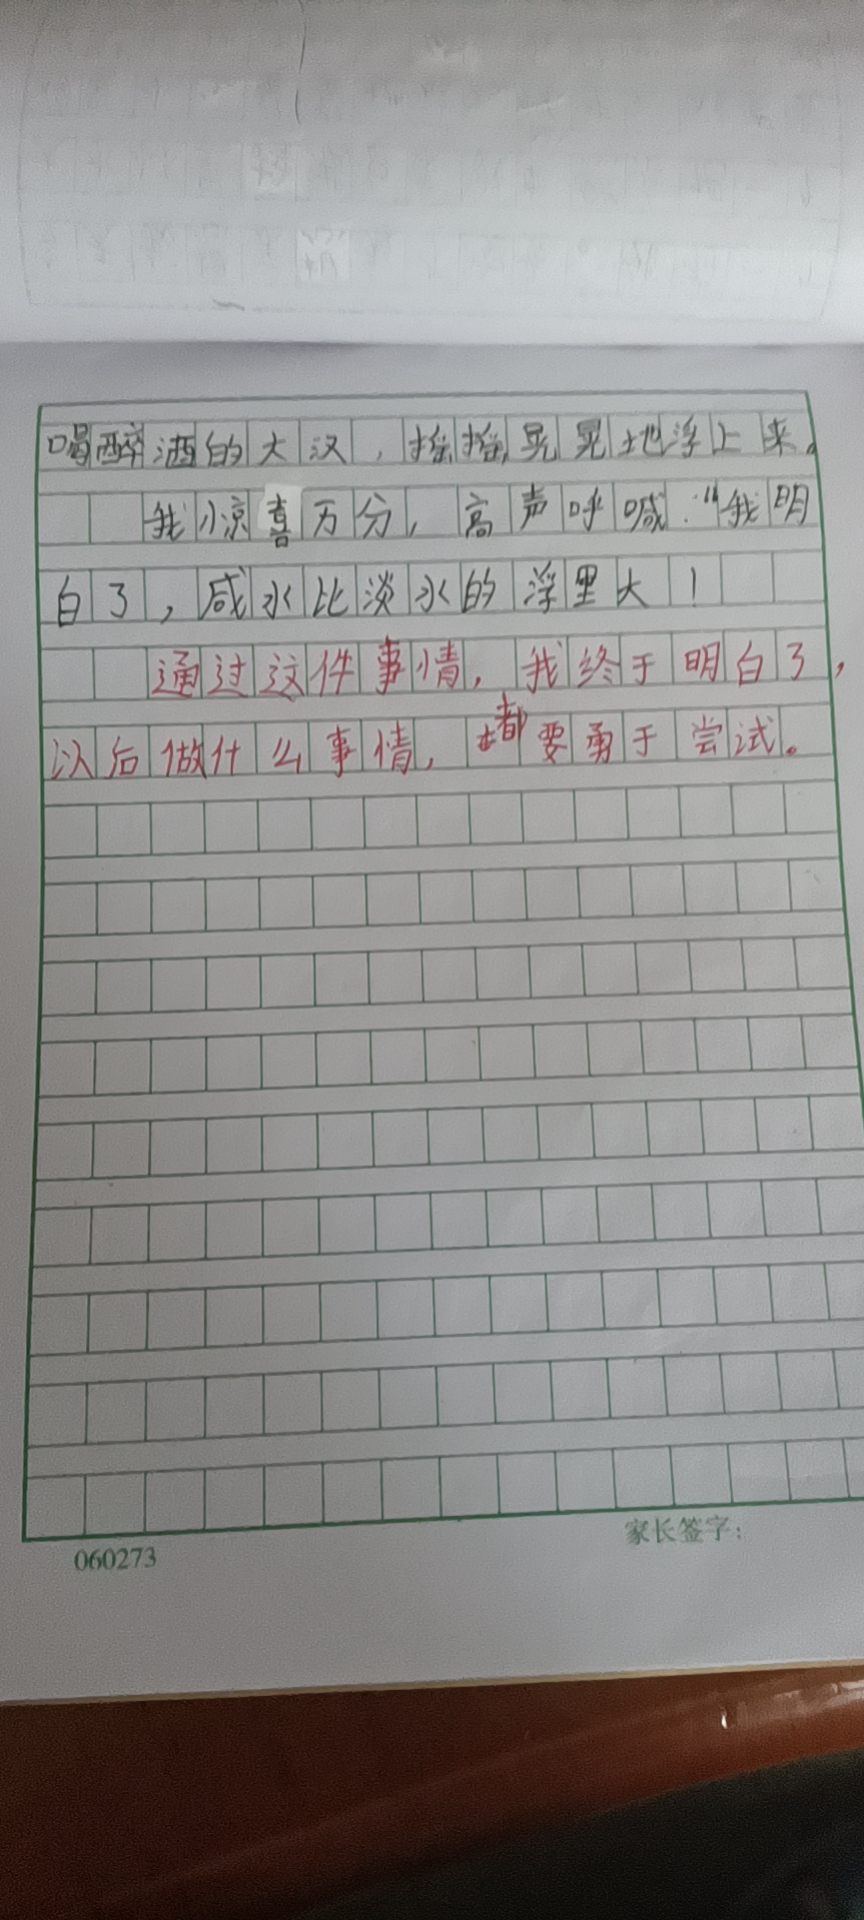 喝醉酒的大汉，摇摇晃晃地浮上来。
我惊喜万分，高声呼喊：“我明
白了，咸水比淡水的浮里大！
通过这件事情，我终于明白了，
以后做什么事情，都要勇于尝试。
060273
家长签字：